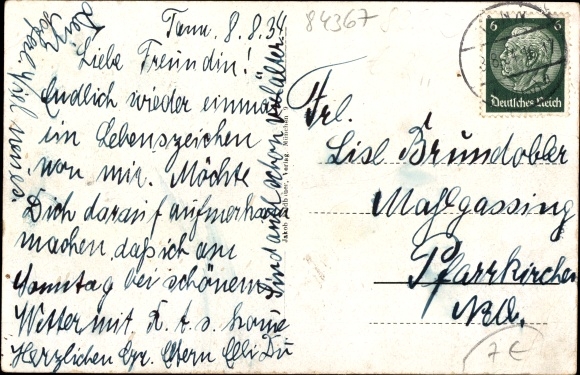 Tann, 8.8.34
Liebe Freundin!
Endlich wieder einmal
ein Lebenszeichen
von mir. Möchte
Dich darauf aufmerksam
machen daß ich am
Sonntag bei schönem
Wetter mit R. t. s. komme
Herzlichen Gr. Eltern Elli Du
Sind auch schon viel älter
84367
6 6
Deutsches Reich
Frl.
Lisl Bründobler
Maßgassing
Pfarrkirchen
Nd.
7€